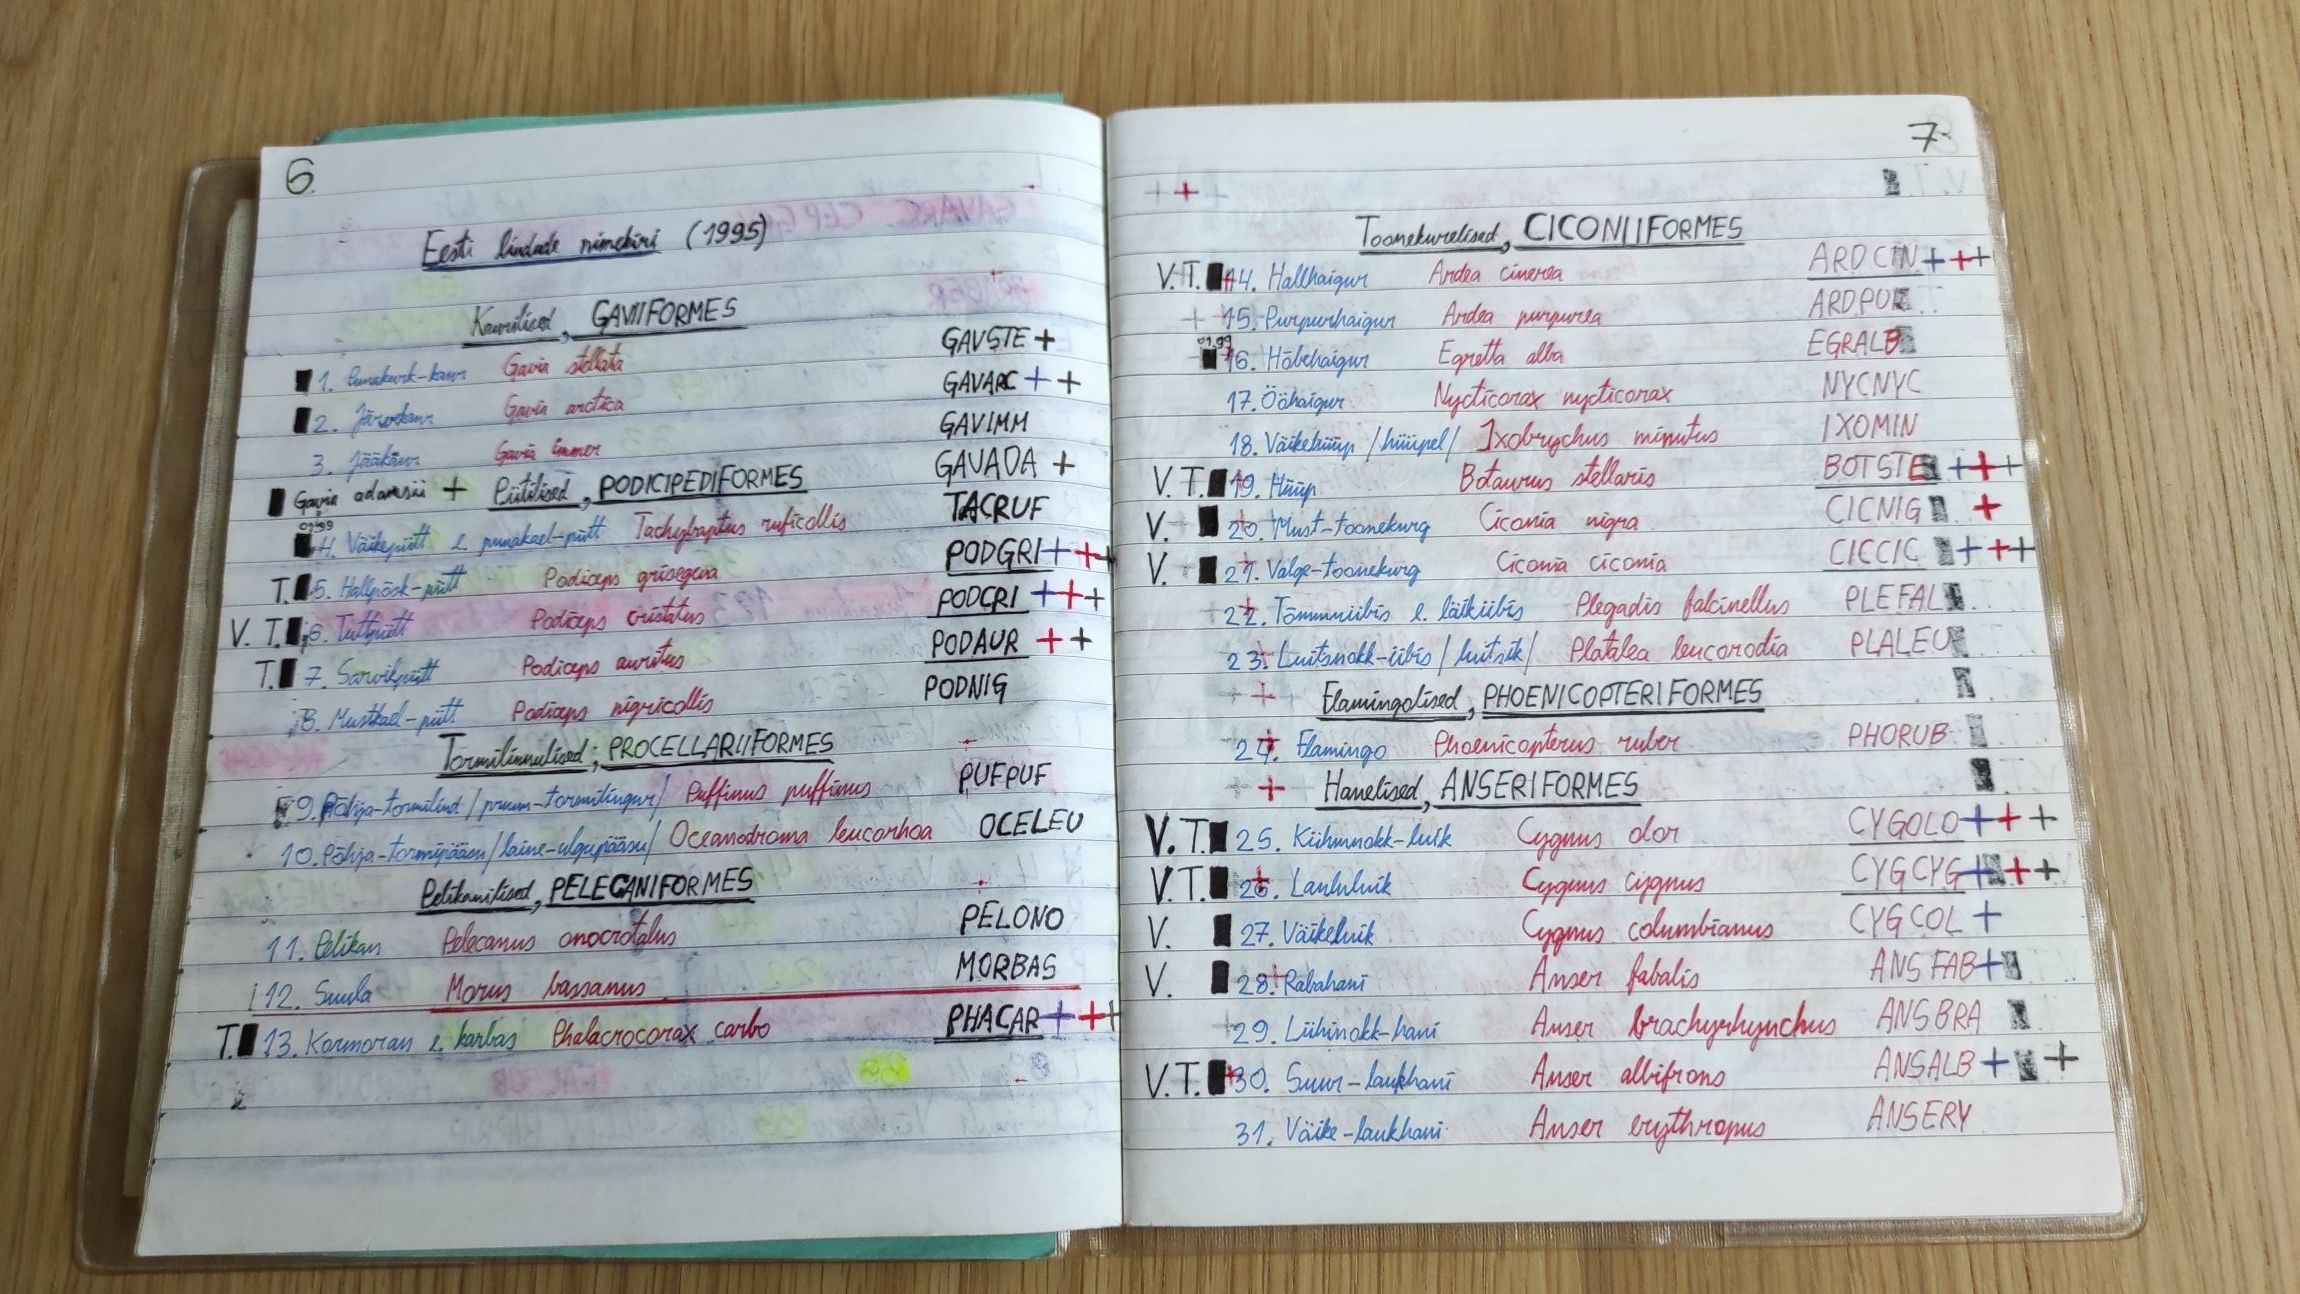 6.
Eesti lindude nimekiri (1995)
Kaurilised, GAVIIFORMES
1. Punakurk-kaur Gavia stellata GAVSTE +
2. Järvekaur Gavia arctica GAVARC + +
3. Jääkaur Gavia immer GAVIMM
Gavia adamsii + GAVADA +
Pütilised, PODICIPEDIFORMES
4. Väikepütt e. punakael-pütt Tachybaptus ruficollis TACRUF
T. 5. Hallpõsk-pütt Podiceps grisegena PODGRI + + +
V. T. 6. Tuttpütt Podiceps cristatus PODCRI + + +
T. 7. Sarvikpütt Podiceps auritus PODAUR + +
8. Mustkael-pütt Podiceps nigricollis PODNIG
Tormilinnulised; PROCELLARIIFORMES
9. Põhja-tormilind / Puffinus puffinus PUFPUF
10. Põhja-tormipääsu / laine-ulgupääsu / Oceanodroma leucorhoa OCELEU
Pelikanilised, PELECANIFORMES
11. Pelikan Pelecanus onocrotalus PELONO
12. Suula Morus bassanus MORBAS
T. 13. Kormoran e. karbas Phalacrocorax carbo PHACAR + + +
7
Toonekurelised, CICONIIFORMES
V. T. 14. Hallhaigur Ardea cinerea ARDCIN + + +
15. Purpurhaigur Ardea purpurea ARDPUR
16. Hõbehaigur Egretta alba EGRALB
17. Ööhaigur Nycticorax nycticorax NYCNYC
18. Väikehüüp /hüüpel/ Ixobrychus minutus IXOMIN
V. T. 19. Hüüp Botaurus stellaris BOTSTE + + +
V. 20. Must-toonekurg Ciconia nigra CICNIG +
V. 21. Valge-toonekurg Ciconia ciconia CICCIC + + +
22. Tõmmuiibis e. läikiibis Plegadis falcinellus PLEFAL
23. Luitsnokk-iibis /luitsik/ Platalea leucorodia PLALEU
Flamingolised, PHOENICOPTERIFORMES
24. Flamingo Phoenicopterus ruber PHORUB
Hanelised, ANSERIFORMES
V. T. 25. Kühmnokk-luik Cygnus olor CYGOLO + + +
V. T. 26. Laululuik Cygnus cygnus CYGCYG + + +
V. 27. Väikeluik Cygnus columbianus CYGCOL +
V. 28. Rabahani Anser fabalis ANSFAB +
29. Lühinokk-hani Anser brachyrhynchus ANSBRA
V. T. 30. Suur-laukhani Anser albifrons ANSALB + +
31. Väike-laukhani Anser erythropus ANSERY